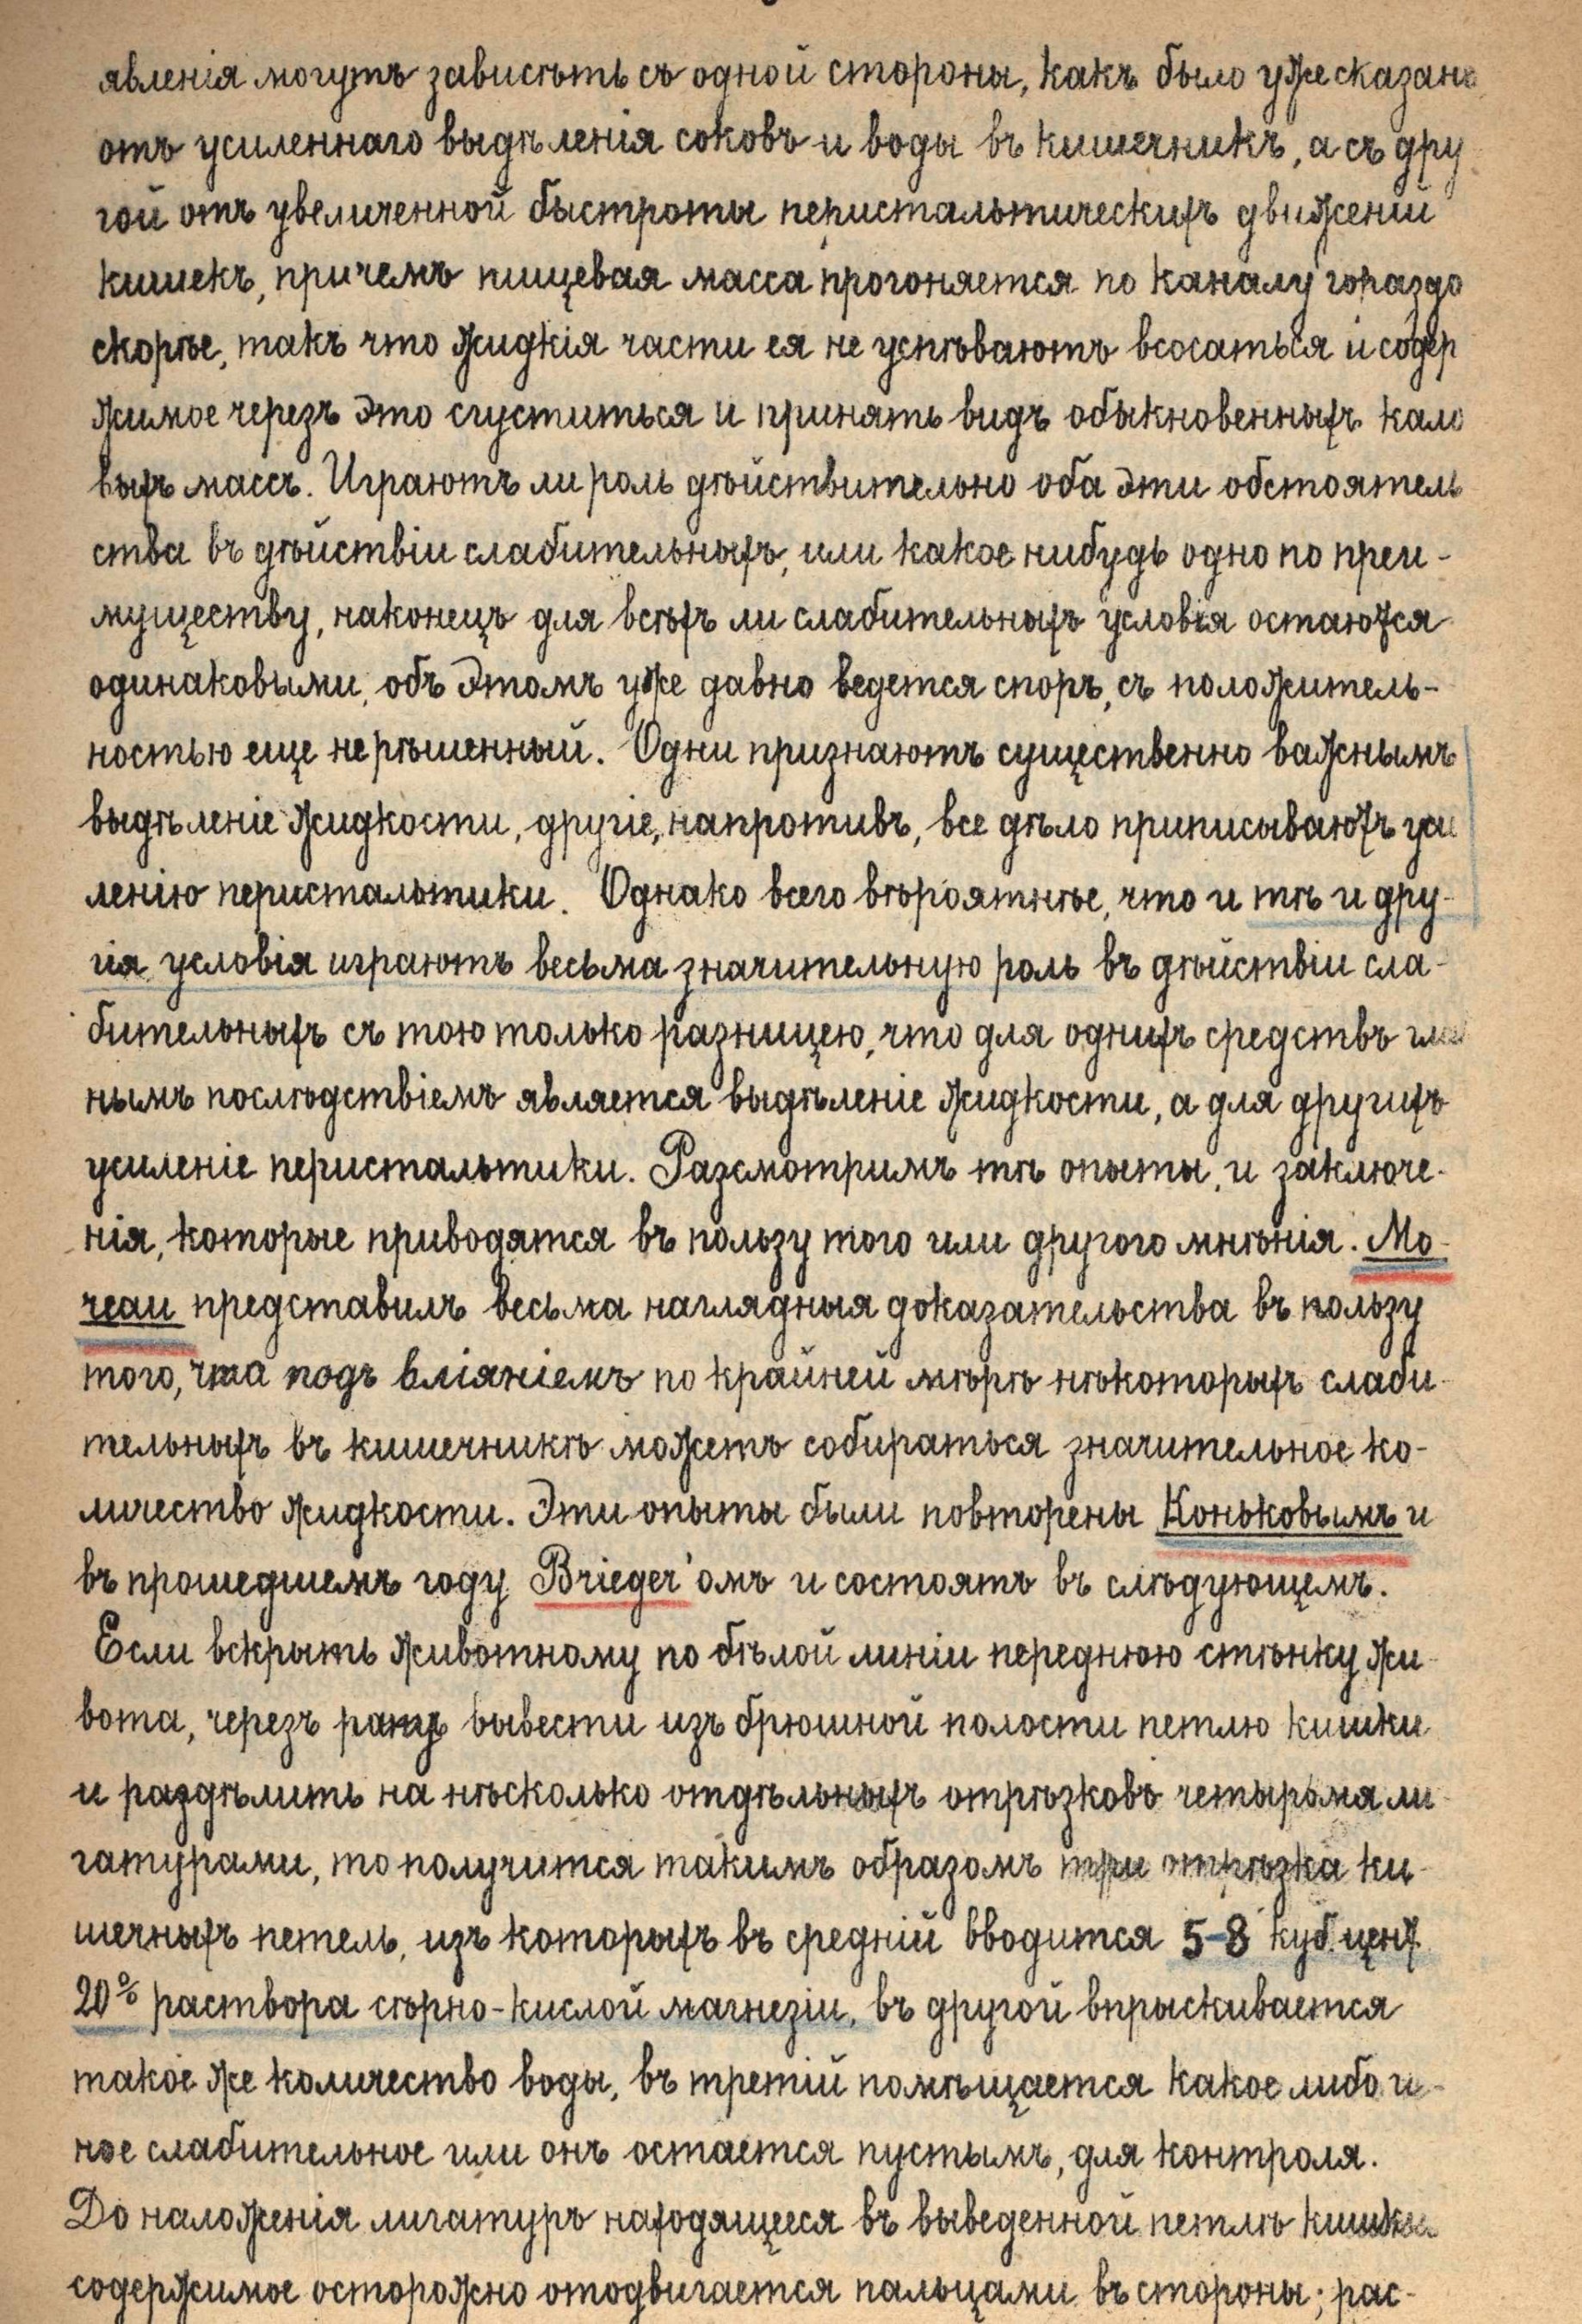 явленія могутъ зависѣть съ одной стороны, какъ было уже сказано
отъ усиленнаго выдѣленія соковъ и воды въ кишечникъ, а съ дру
гой отъ увеличенной быстроты перистальтическихъ движеній
кишекъ, причемъ пищевая масса прогоняется по каналу гораздо
скорѣе, такъ что жидкія части ея не успѣваютъ всосаться и содер
жимое черезъ это сгуститься и принять видъ обыкновенныхъ кало
выхъ массъ. Играютъ ли роль дѣйствительно оба эти обстоятель
ства въ дѣйствіи слабительныхъ, или какое нибудь одно по преи-
муществу, наконецъ для всѣхъ ли слабительныхъ условія остаются
одинаковыми, объ этомъ уже давно ведется споръ, съ положитель-
ностью еще не рѣшенный. Одни признаютъ существенно важнымъ
выдѣленіе жидкости, другіе, напротивъ, все дѣло приписываютъ уси
ленію перистальтики. Однако всего вѣроятнѣе, что и тѣ и дру-
гія условія играютъ весьма значительную роль въ дѣйствіи сла-
бительныхъ съ тою только разницею, что для однихъ средствъ глав
нымъ послѣдствіемъ является выдѣленіе жидкости, а для другихъ
усиленіе перистальтики. Разсмотримъ тѣ опыты, и заключе-
нія, которые приводятся въ пользу того или другого мнѣнія. Мо-
чеаи представилъ весьма наглядныя доказательства въ пользу
того, что подъ вліяніемъ по крайней мѣрѣ нѣкоторыхъ слаби-
тельныхъ въ кишечникѣ можетъ собираться значительное ко-
личество жидкости. Эти опыты были повторены Коньковымъ и
въ прошедшемъ году Brieger'омъ и состоятъ въ слѣдующемъ.
Если вскрыть животному по бѣлой линіи переднюю стѣнку жи-
вота, черезъ рану вывести изъ брюшной полости петлю кишки
и раздѣлить на нѣсколько отдѣльныхъ отрѣзковъ четырьмя ли-
гатурами, то получится такимъ образомъ три отрѣзка ки-
шечныхъ петель, изъ которыхъ въ средній вводится 5-8 куб. цент.
20% раствора сѣрно-кислой магнезіи, въ другой впрыскивается
такое же количество воды, въ третій помѣщается какое либо и-
ное слабительное или онъ остается пустымъ, для контроля.
До наложенія лигатуръ находящееся въ выведенной петлѣ кишки
содержимое осторожно отодвигается пальцами въ стороны; рас-